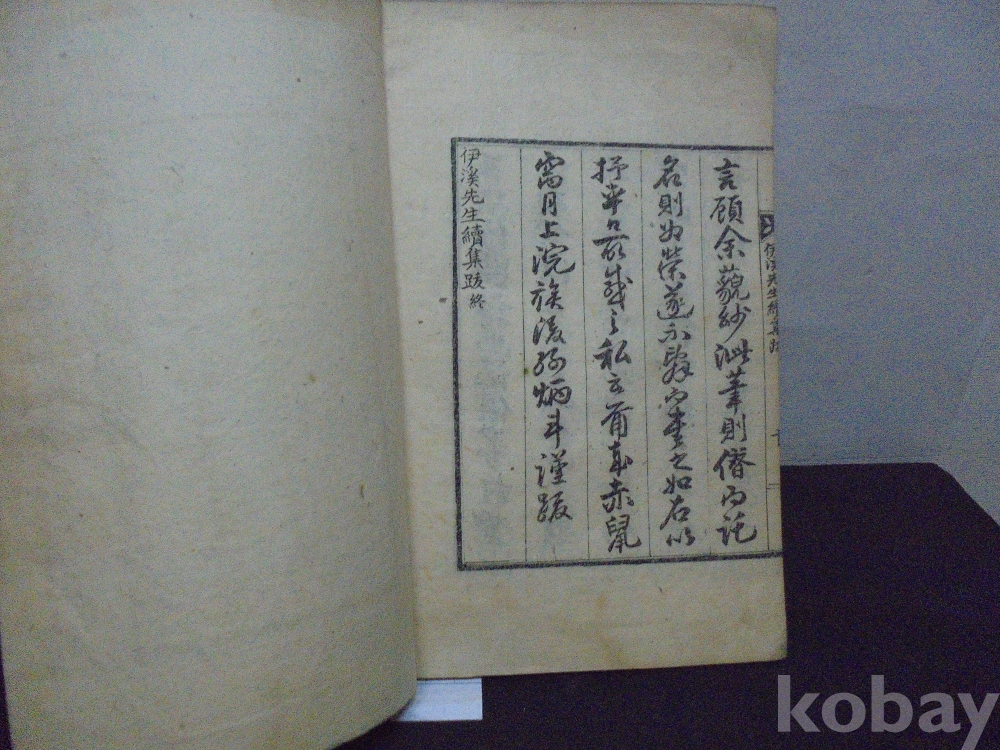 言顧余藐紗泚筆則僭而託
名則為榮遂不辭而書之如右以
抒平日嚴之私云爾歲赤鼠
月上浣族後孫炳斗謹跋
伊溪先生續集跋 終
伊溪先生續集跋
kobay